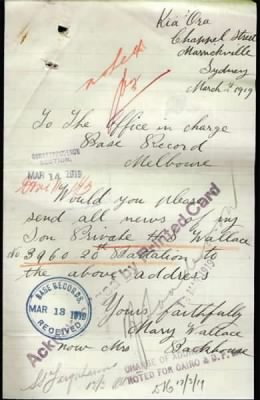 Kia 'Ora
Chappel Street
Marrickville
Sydney
March 1919
noted
To The Office in charge
Base Record
Melbourne
CORRESPONDENCE
SECTION
MAR 14 1919
Would you please
send all news of my
Son Private Wallace
No 3960 20th Battalion to
the above address
Ack by Printed Card
BASE RECORDS
MAR 13 1919
RECEIVED
Yours faithfully
Mary Wallace
now Mrs Backhouse
CHANGE OF ADDRESS
NOTED FOR CAIRO & B.E.F.